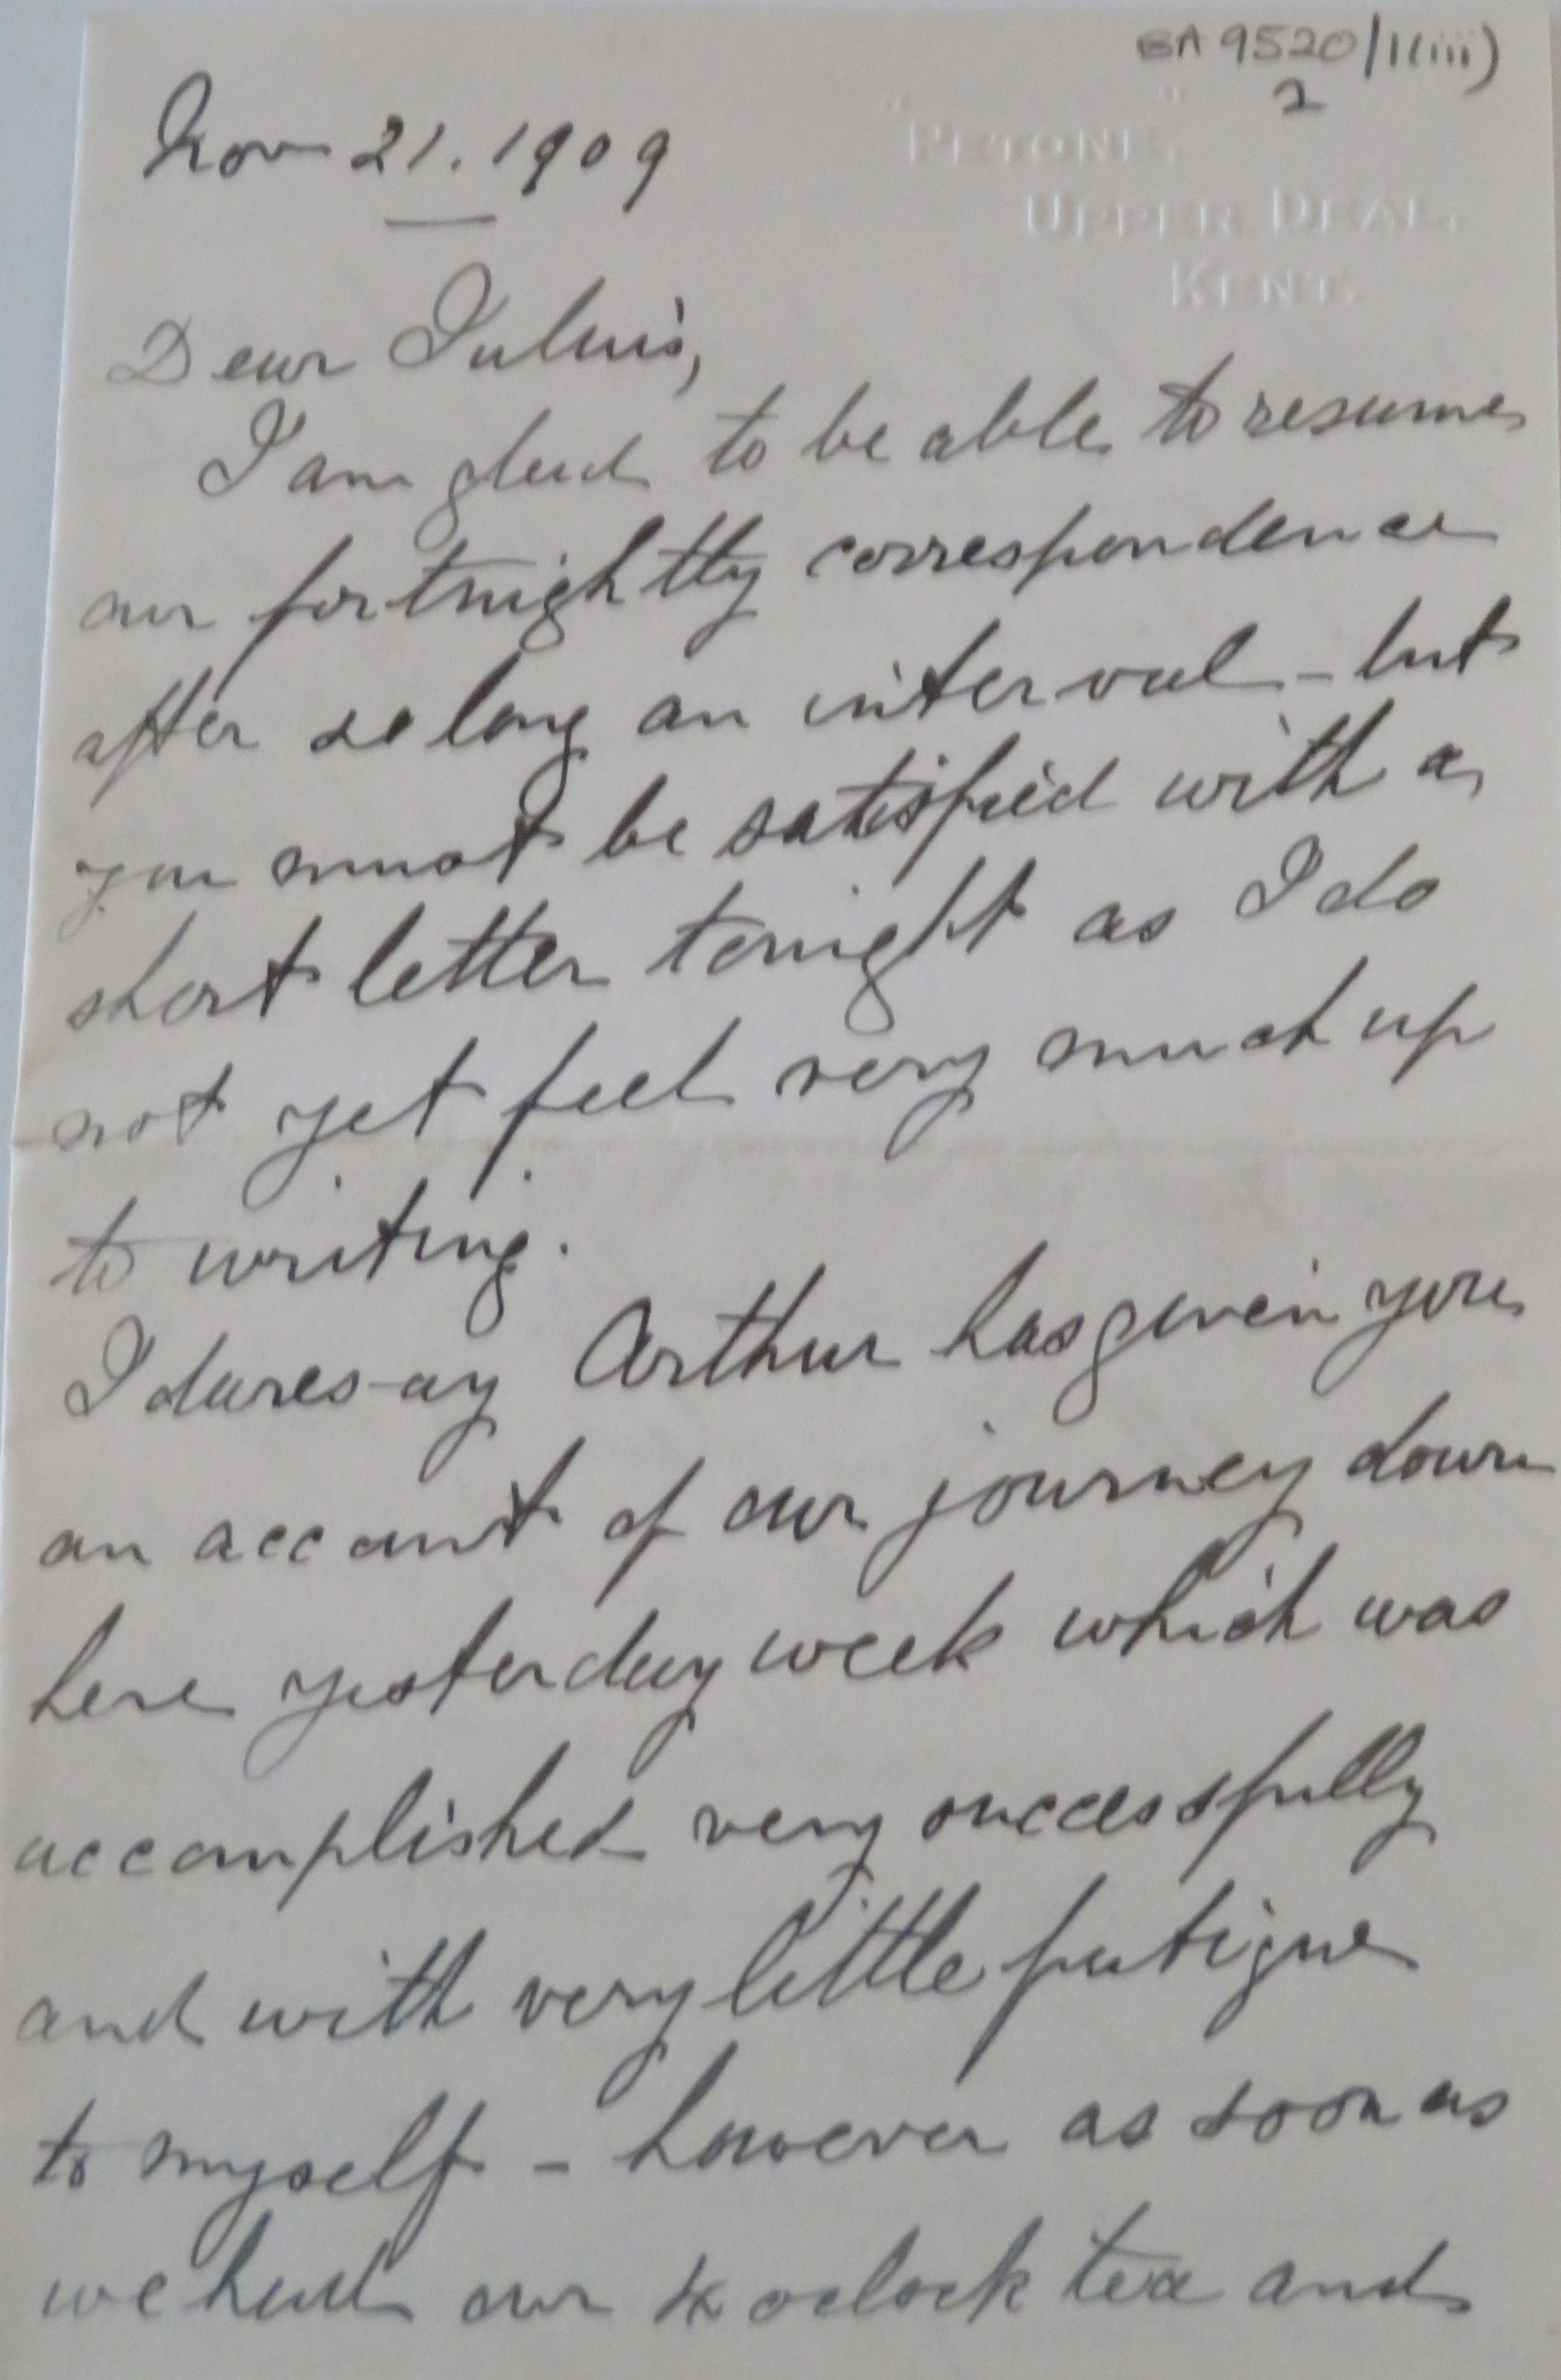 BA 9520/1(iii)
2
"PETONE,"
UPPER DEAL,
KENT.
Nov 21. 1909
Dear Julius,
I am glad to be able to resume
our fortnightly correspondence
after so long an interval - but
you must be satisfied with a
short letter tonight as I do
not yet feel very much up
to writing.
I daresay Arthur has given you
an account of our journey down
here yesterday week which was
accomplished very successfully
and with very little fatigue
to myself - however as soon as
we had our 4 oclock tea and